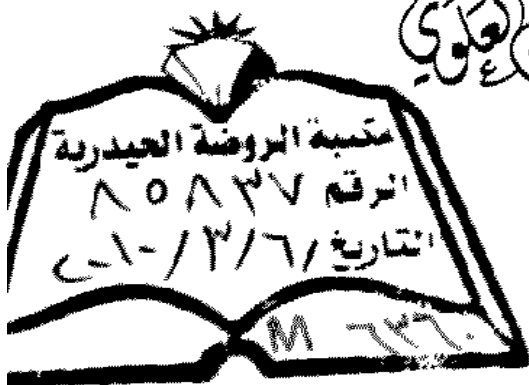 العلوي
ع
مكتبة الروضة الحيدرية
الرقم ٨٥٨٣٧
التاريخ ٦/٣/٢٠١٠
M ٦٣٦٠